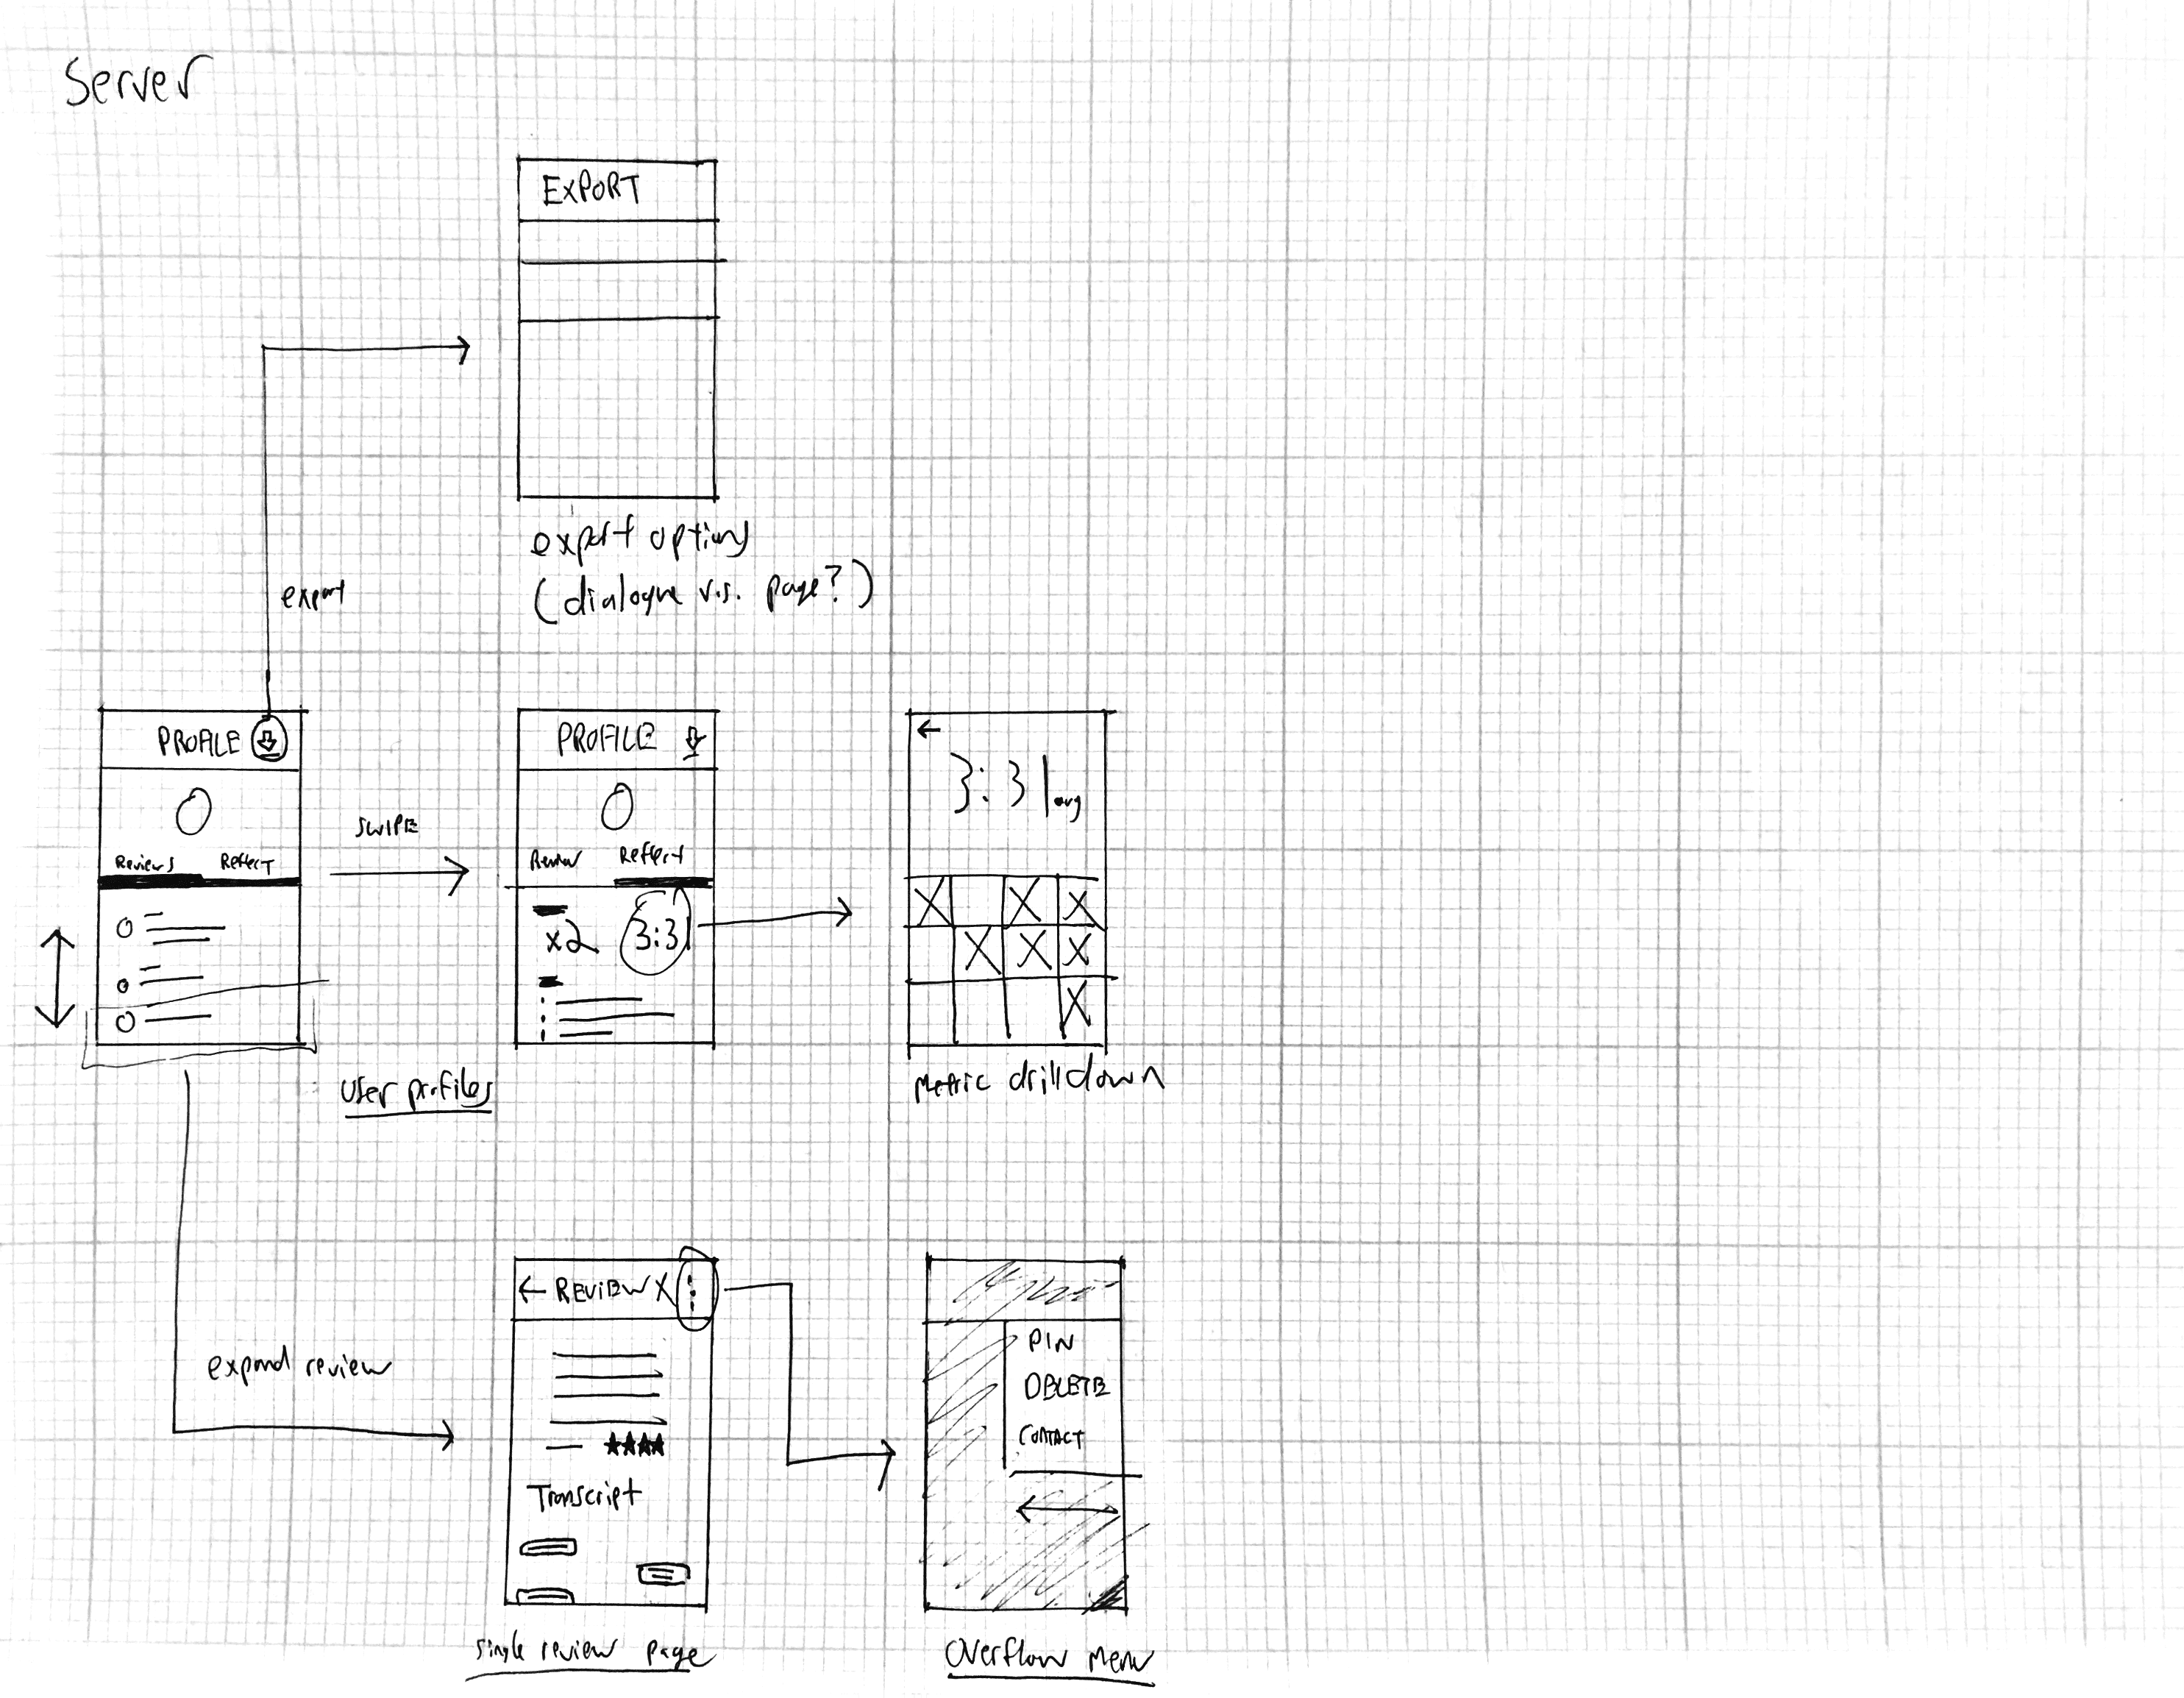 Server
EXPORT
export options
(dialogue v.s. page?)
export
PROFILE
Reviews Reflect
SWIPE
PROFILE
Review Reflect
x2 3:31
User profiles
←
3:31 avg
Metric drilldown
expand review
← REVIEW X
★★★★
Transcript
single review page
PIN
DELETE
CONTACT
Overflow menu